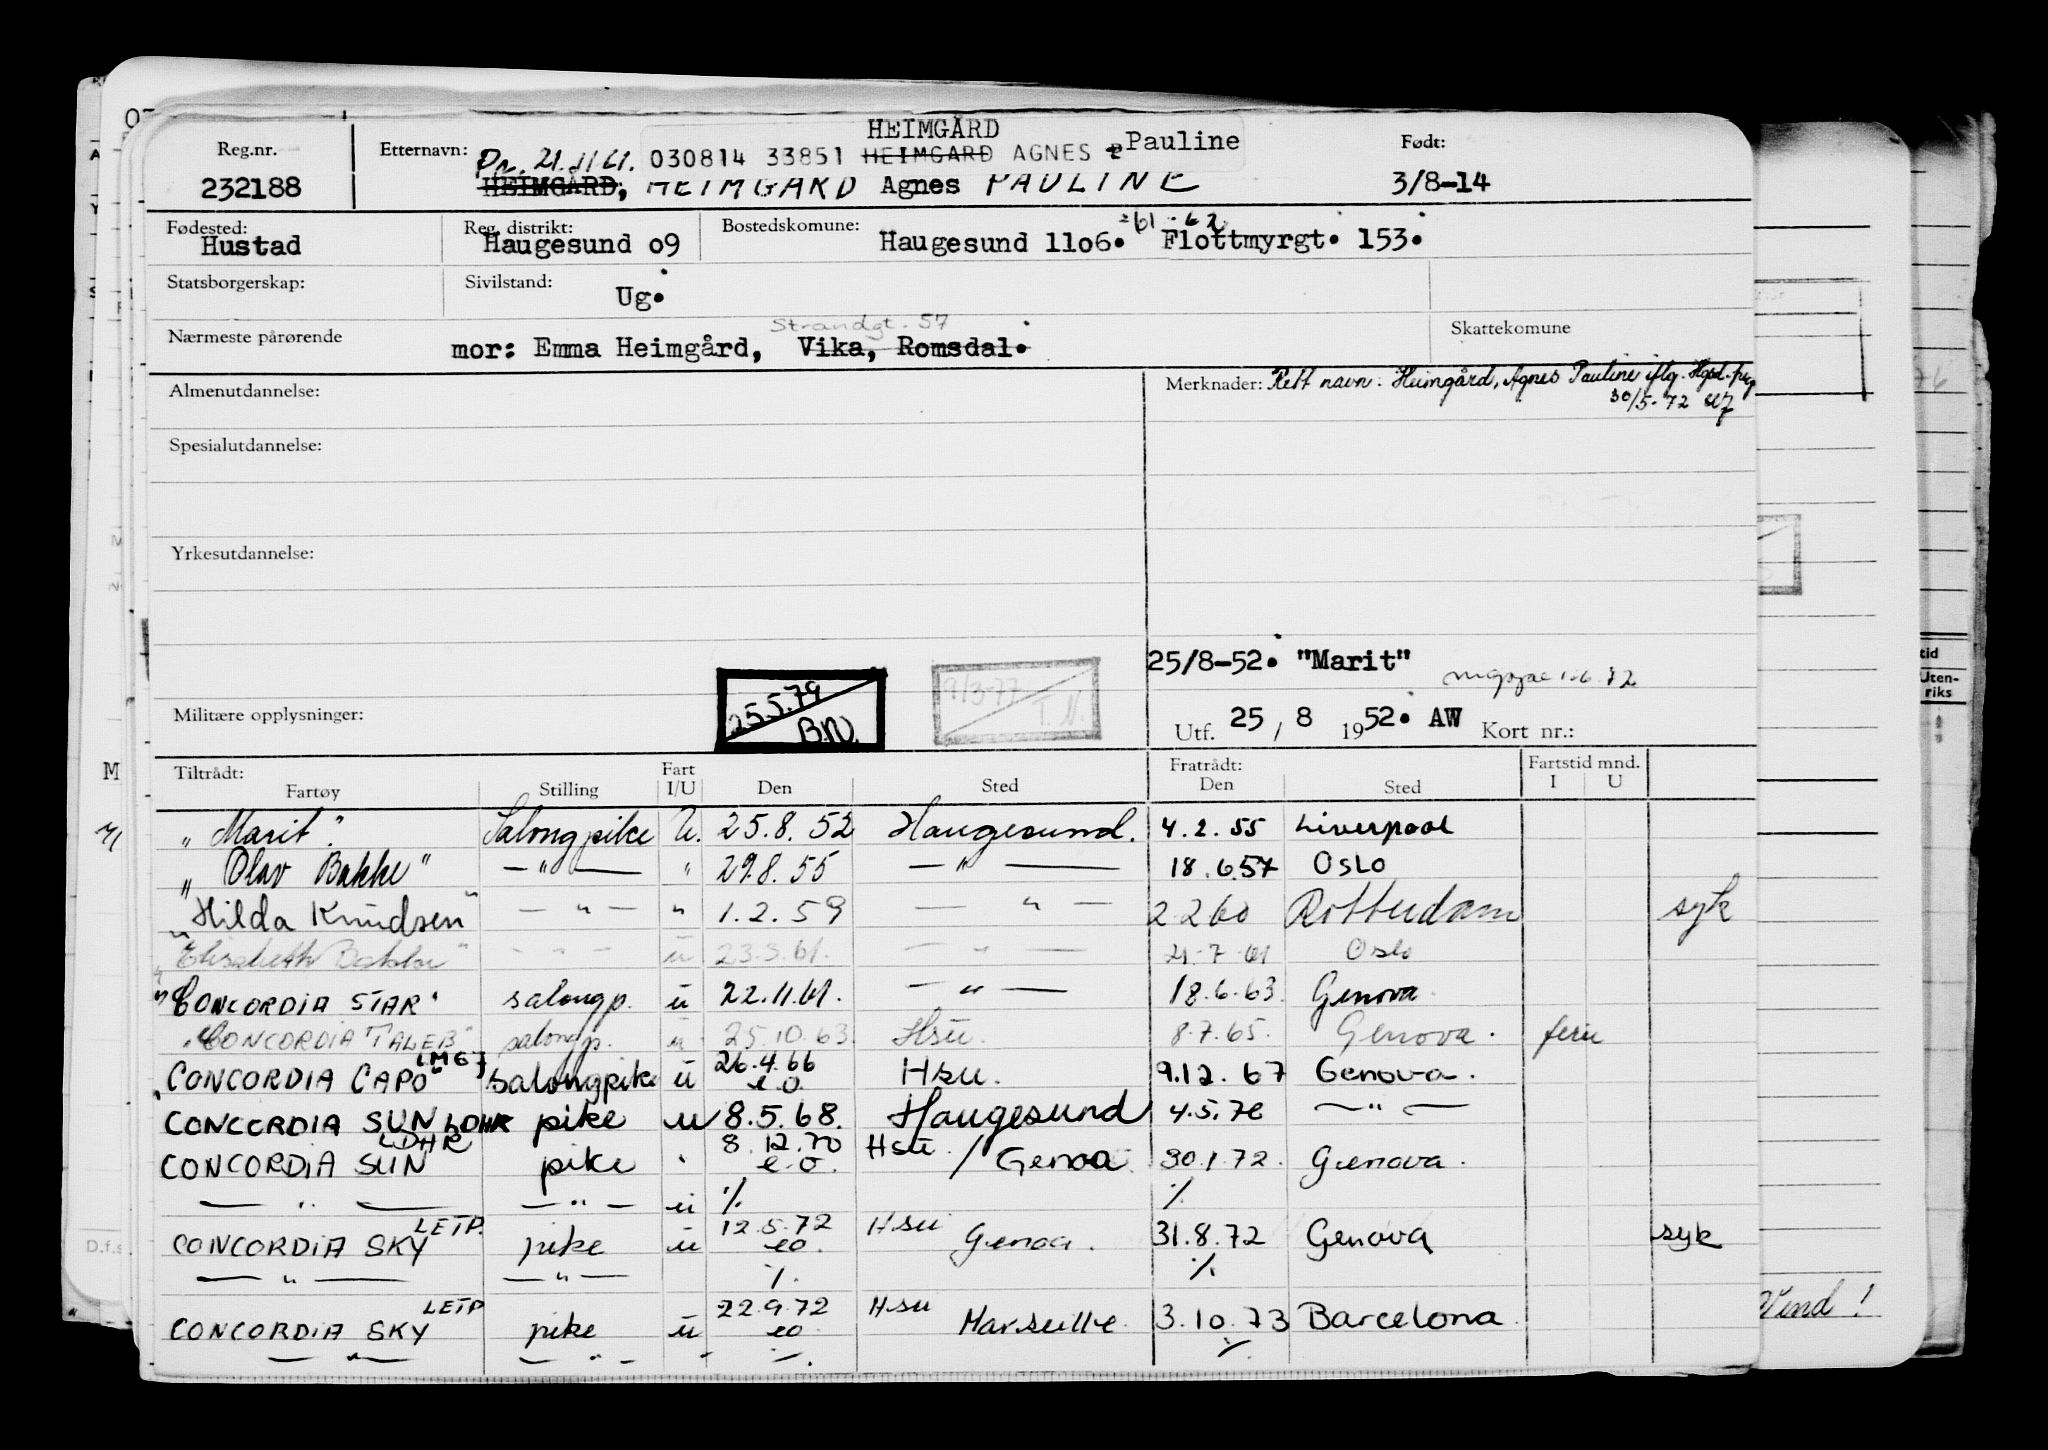 HEIMGÅRD
Reg.nr. Etternavn: Pn. 21.11.61. 030814 33851 HEIMGARD AGNES Pauline Født:
232188 HEIMGÅRD, HEIMGÅRD Agnes PAULINE 3/8-14
Fødested: Reg. distrikt: Bostedskomune: 61-62
Hustad Haugesund o9 Haugesund 11o6. Flottmyrgt. 153.
Statsborgerskap: Sivilstand: Ug.
Strandgt. 57
Nærmeste pårørende mor: Emma Heimgård, Vika, Romsdal. Skattekomune
Almenutdannelse: Merknader: Rett navn: Heimgård, Agnes Pauline iflg. Hgsd.
30/5-72
Spesialutdannelse:
Yrkesutdannelse:
25/8-52. "Marit"
25.5.79 B.N. 9/3-77 T.N.
Militære opplysninger: Utf. 25/8 1952. AW Kort nr.:
Tiltrådt: Fart Fratrådt: Fartstid mnd.
Fartøy Stilling I/U Den Sted Den Sted I U
"Marit". Salongpike U. 25.8.52 Haugesund. 4.2.55 Liverpool
"Olav Bakke" — " — " 29.8.55 — " — 18.6.57 OSLO
"Hilda Knudsen" — " — " 1.2.59 — " — 2 2 60 Rotterdam syk
"Elisabeth Bakke" - " - u 23.3.61. — " — 21.7.61 Oslo
"CONCORDIA STAR" salongp. u 22.11.61. — " — 18.6.63. Genova.
"CONCORDIA TALEB" salongp. u 25.10.63 Hsu. 8.7.65. Genova. ferie
LMGJ 26.4.66
"CONCORDIA CAPO" salongpike u e.o. Hsu. 9.12.67 Genova.
CONCORDIA SUN LDHR pike u 8.5.68. Haugesund 4.5.70 — " —
LDHR 8.12.70 Hsu.
CONCORDIA SUN pike " e.o. / Genoa 30.1.72. Genova.
— " — — " — u % %
LETP. 12.5.72 Hsu
CONCORDIA SKY pike u eo. Genoa. 31.8.72 Genova syk
— " — — " — %. %
LETP 22.9.72 Hsu
CONCORDIA SKY pike u eo. Marseille. 3.10.73 Barcelona.
— " — — " — " %. %
Vend !
tid
Uten-
riks
M
D.f.s